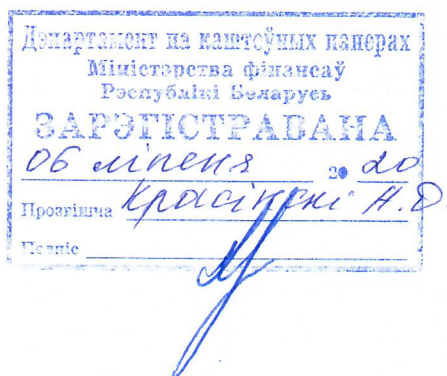 Дэпартамент па каштоўных паперах
Міністэрства фінансаў
Рэспублікі Беларусь
ЗАРЭГІСТРАВАНА
06 ліпеня 20 20
Прозвішча Красінскі Н.О
Подпіс